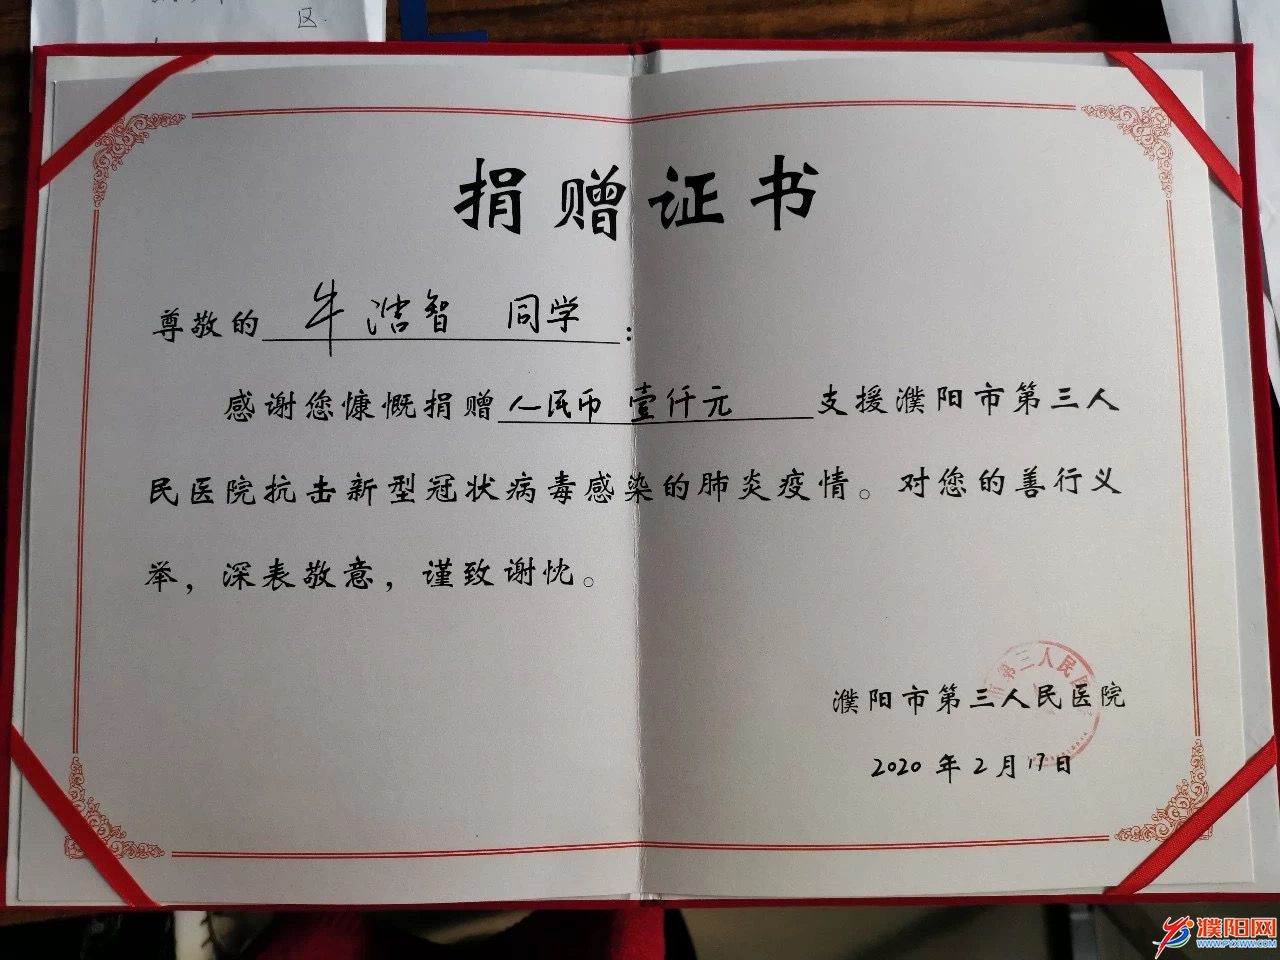 区.
捐赠证书
尊敬的 牛浩智 同学：
感谢您慷慨捐赠人民币 壹仟元 支援濮阳市第三人
民医院抗击新型冠状病毒感染的肺炎疫情。对您的善行义
举，深表敬意，谨致谢忱。
市第三人民医
濮阳市第三人民医院
2020年2月17日
濮阳网
WWW.PYXWW.COM